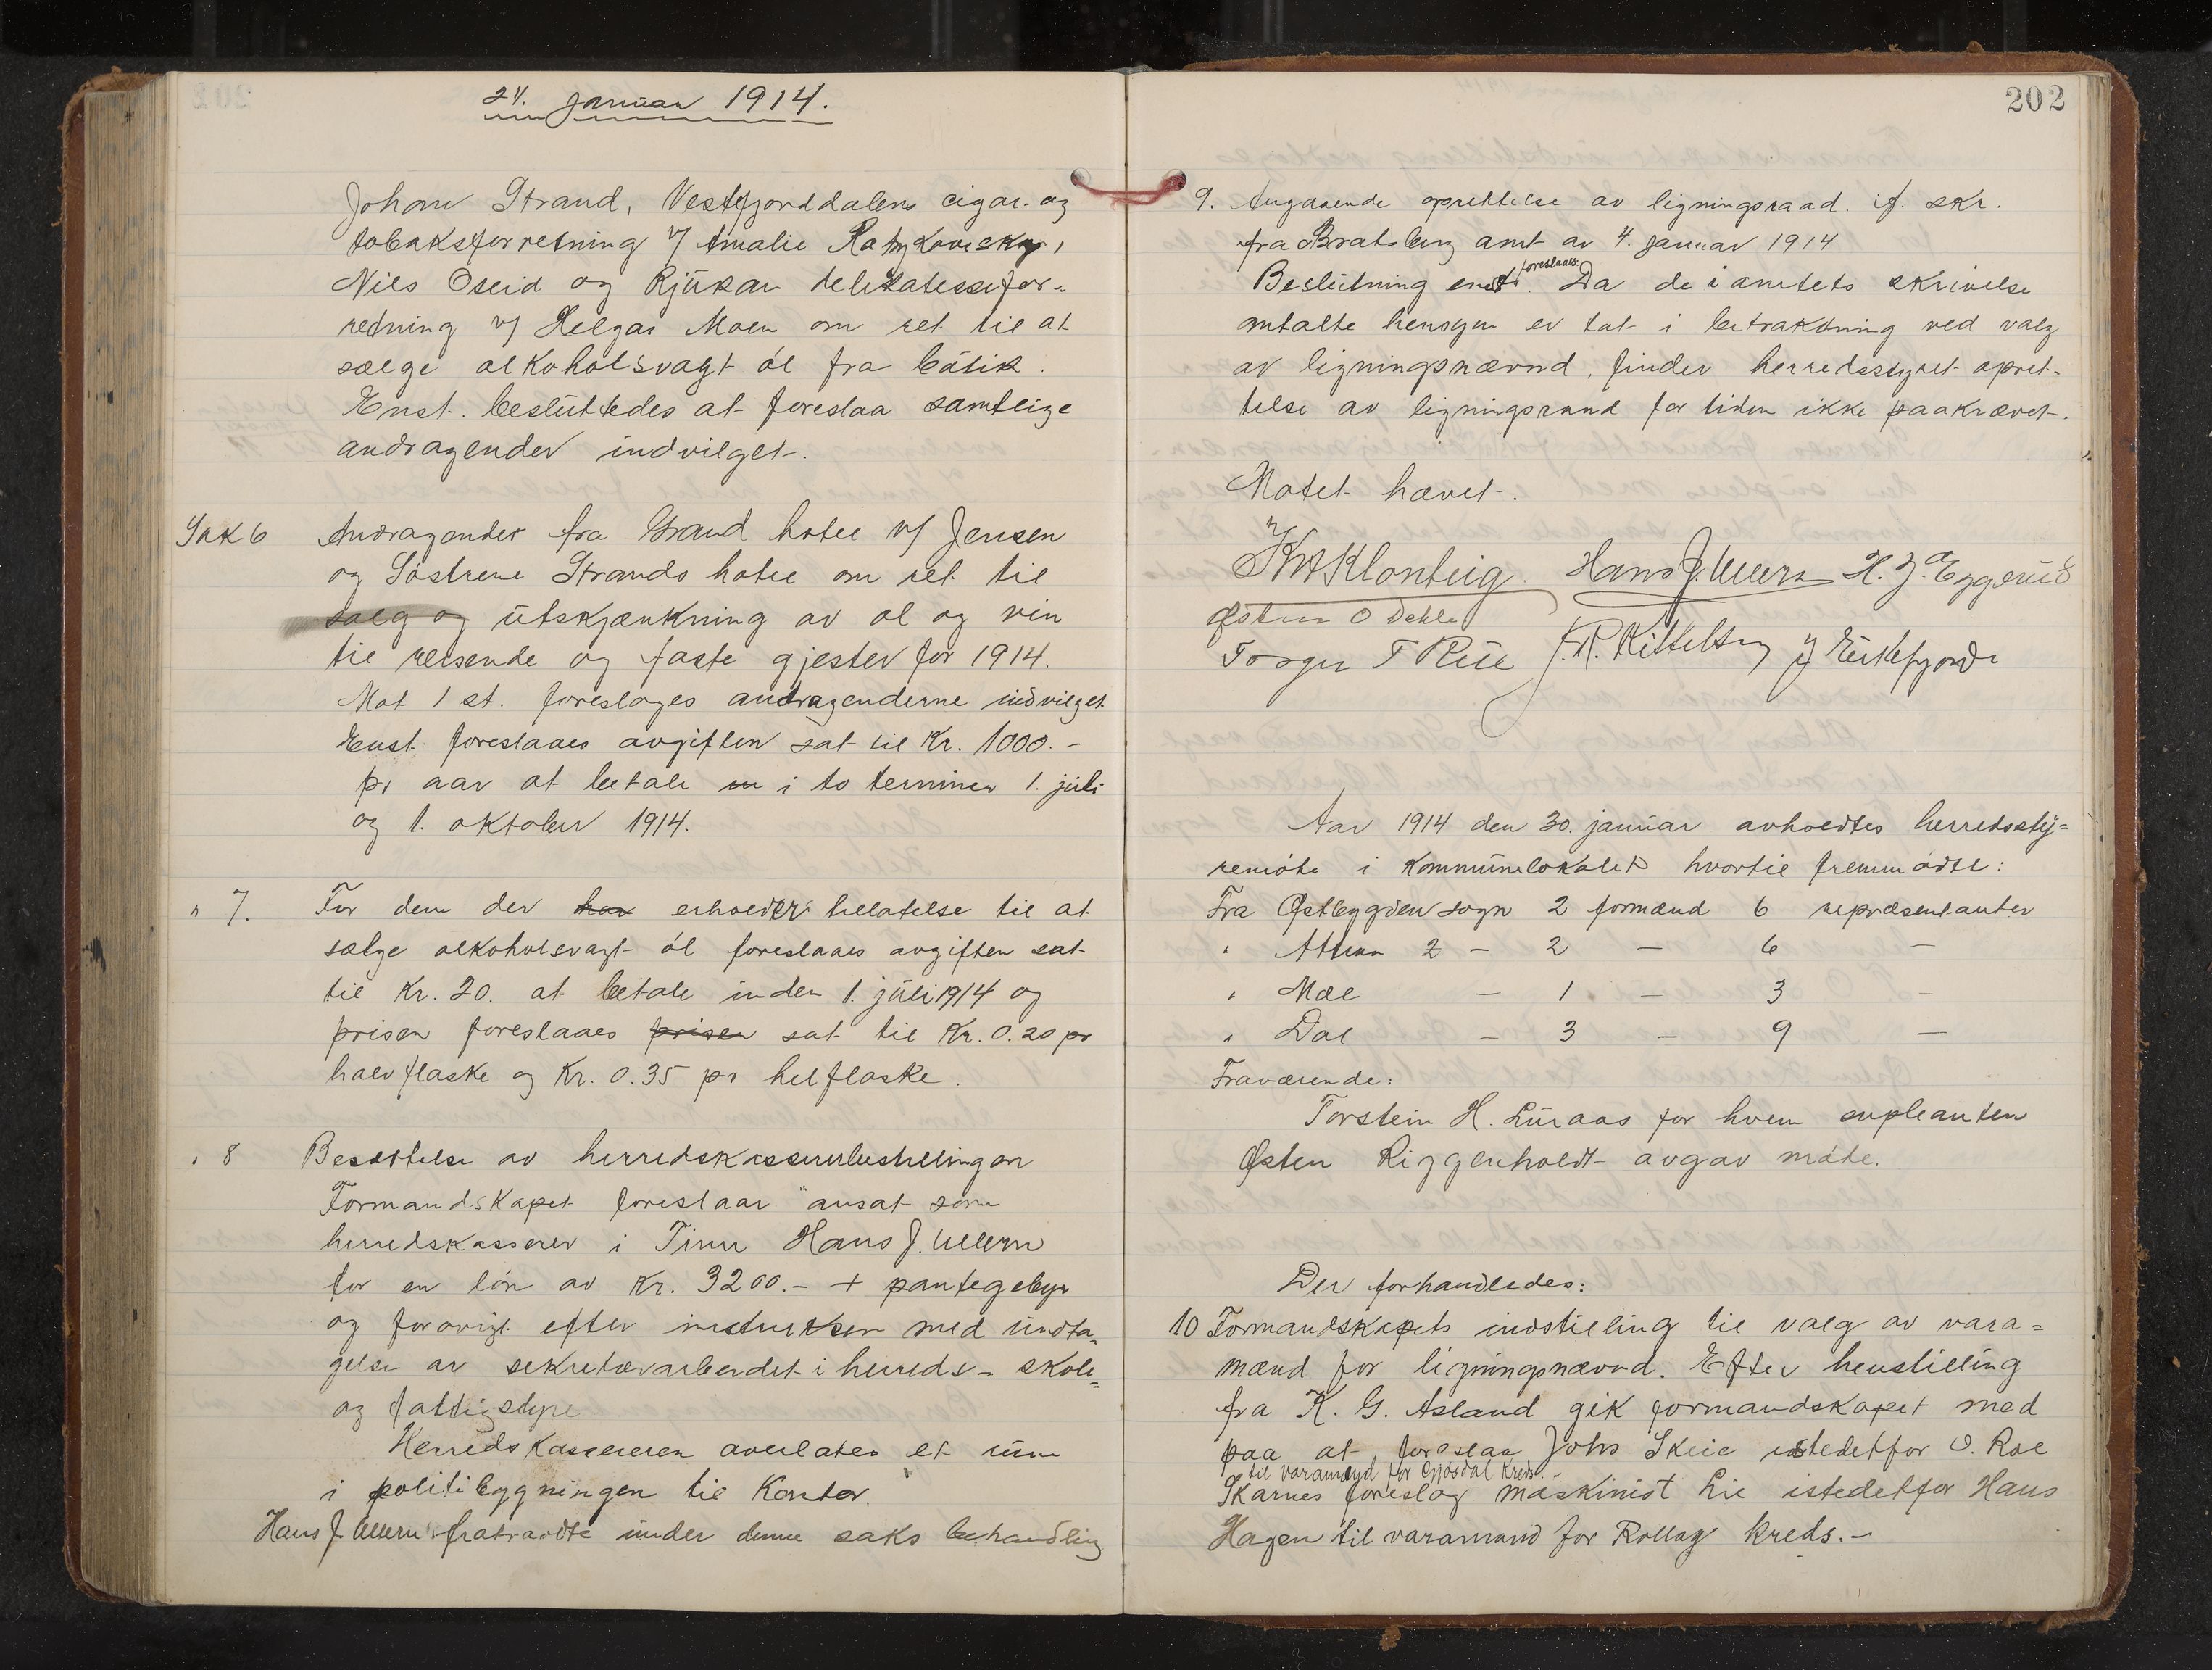 24. januar 1914.
Johan Strand, Vestfjorddalens cigar- og
tobaksforretning v/ Amalie Ratzkowsky,
Niels Øseid og Rjukan delikatessefor-
retning v/ Helgar Moen om ret til at
sælge alkoholsvagt øl fra butik.
Enst. besluttedes at foreslaa samtlige
andragender indvilget.
Sak 6 Andragender fra Grand hotel v/ Jensen
og Søstrene Strands hotel om ret til
salg og utskjænkning av øl og vin
til reisende og faste gjester for 1914.
Mot 1 st. foresloges andragenderne indvilget
Enst. foreslaaes avgiften sat til Kr. 1000.-
pr aar at betale en i to terminer 1. juli
og 1. oktober 1914.
" 7. For dem der har erholder tillatelse til at
sælge alkoholsvagt øl foreslaaes avgiften sat
til Kr. 20. at betale inden 1. juli 1914 og
prisen foreslaaes prisen sat til Kr. 0.20 pr
halvflaske og Kr. 0.35 pr helflaske.
" 8 Besættelse av herredskassererbestillingen
Formandskapet foreslaar ansat som
herredskasserer i Tinn Hans J. Ullern
for en løn av Kr. 3200.- + pantegebyr
og forøvrigt efter instruksen med undta-
gelse av sekretærarbeidet i herreds- skole=
og fattigstyre
Herredskassereren overlates et rum
i politibygningen til Kontor.
Hans J. Ullern fratraadte under denne saks behandling
202
9. Angaaende oprettelse av ligningsraad. jf. skr.
fra Bratsberg amt av 4. januar 1914
Beslutning enst. foreslaaes: Da de i amtets skrivelse
omtalte hensyn er tat i betraktning ved valg
av ligningsnævnd, finder herredsstyret opret-
telse av ligningsraad for tiden ikke paakrævet.
Møtet hævet.
Kn Klonteig. Hans J. Ullern H. J. Eggerud
Østen O Dahle
Torger T Rue J. R. Kittelsen J Eikefjord
Aar 1914 den 30. januar avholdtes herredssty=
remøte i kommunelokalet hvortil fremmødte:
Fra Østbygden sogn 2 formænd 6 repræsentanter
" Attraa 2 - 2 - 6 -
" Mæl - 1 - 3 -
" Dal - 3 - 9 -
Fraværende:
Torstein H. Luraas for hvem supleanten
Østen Riggenholdt avgav møte.
Der forhandledes:
10 Formandskapets indstilling til valg av vara=
mænd for ligningsnævnd. Efter henstilling
fra K. G. Asland gik formandskapet med
paa at foreslaa Johs Skeie istedetfor O. Roe
til varamænd for Gjøsdal Kreds.-
Skarnes foreslog maskinist Lie istedetfor Hans
Hagen til varamand for Rollag kreds.-